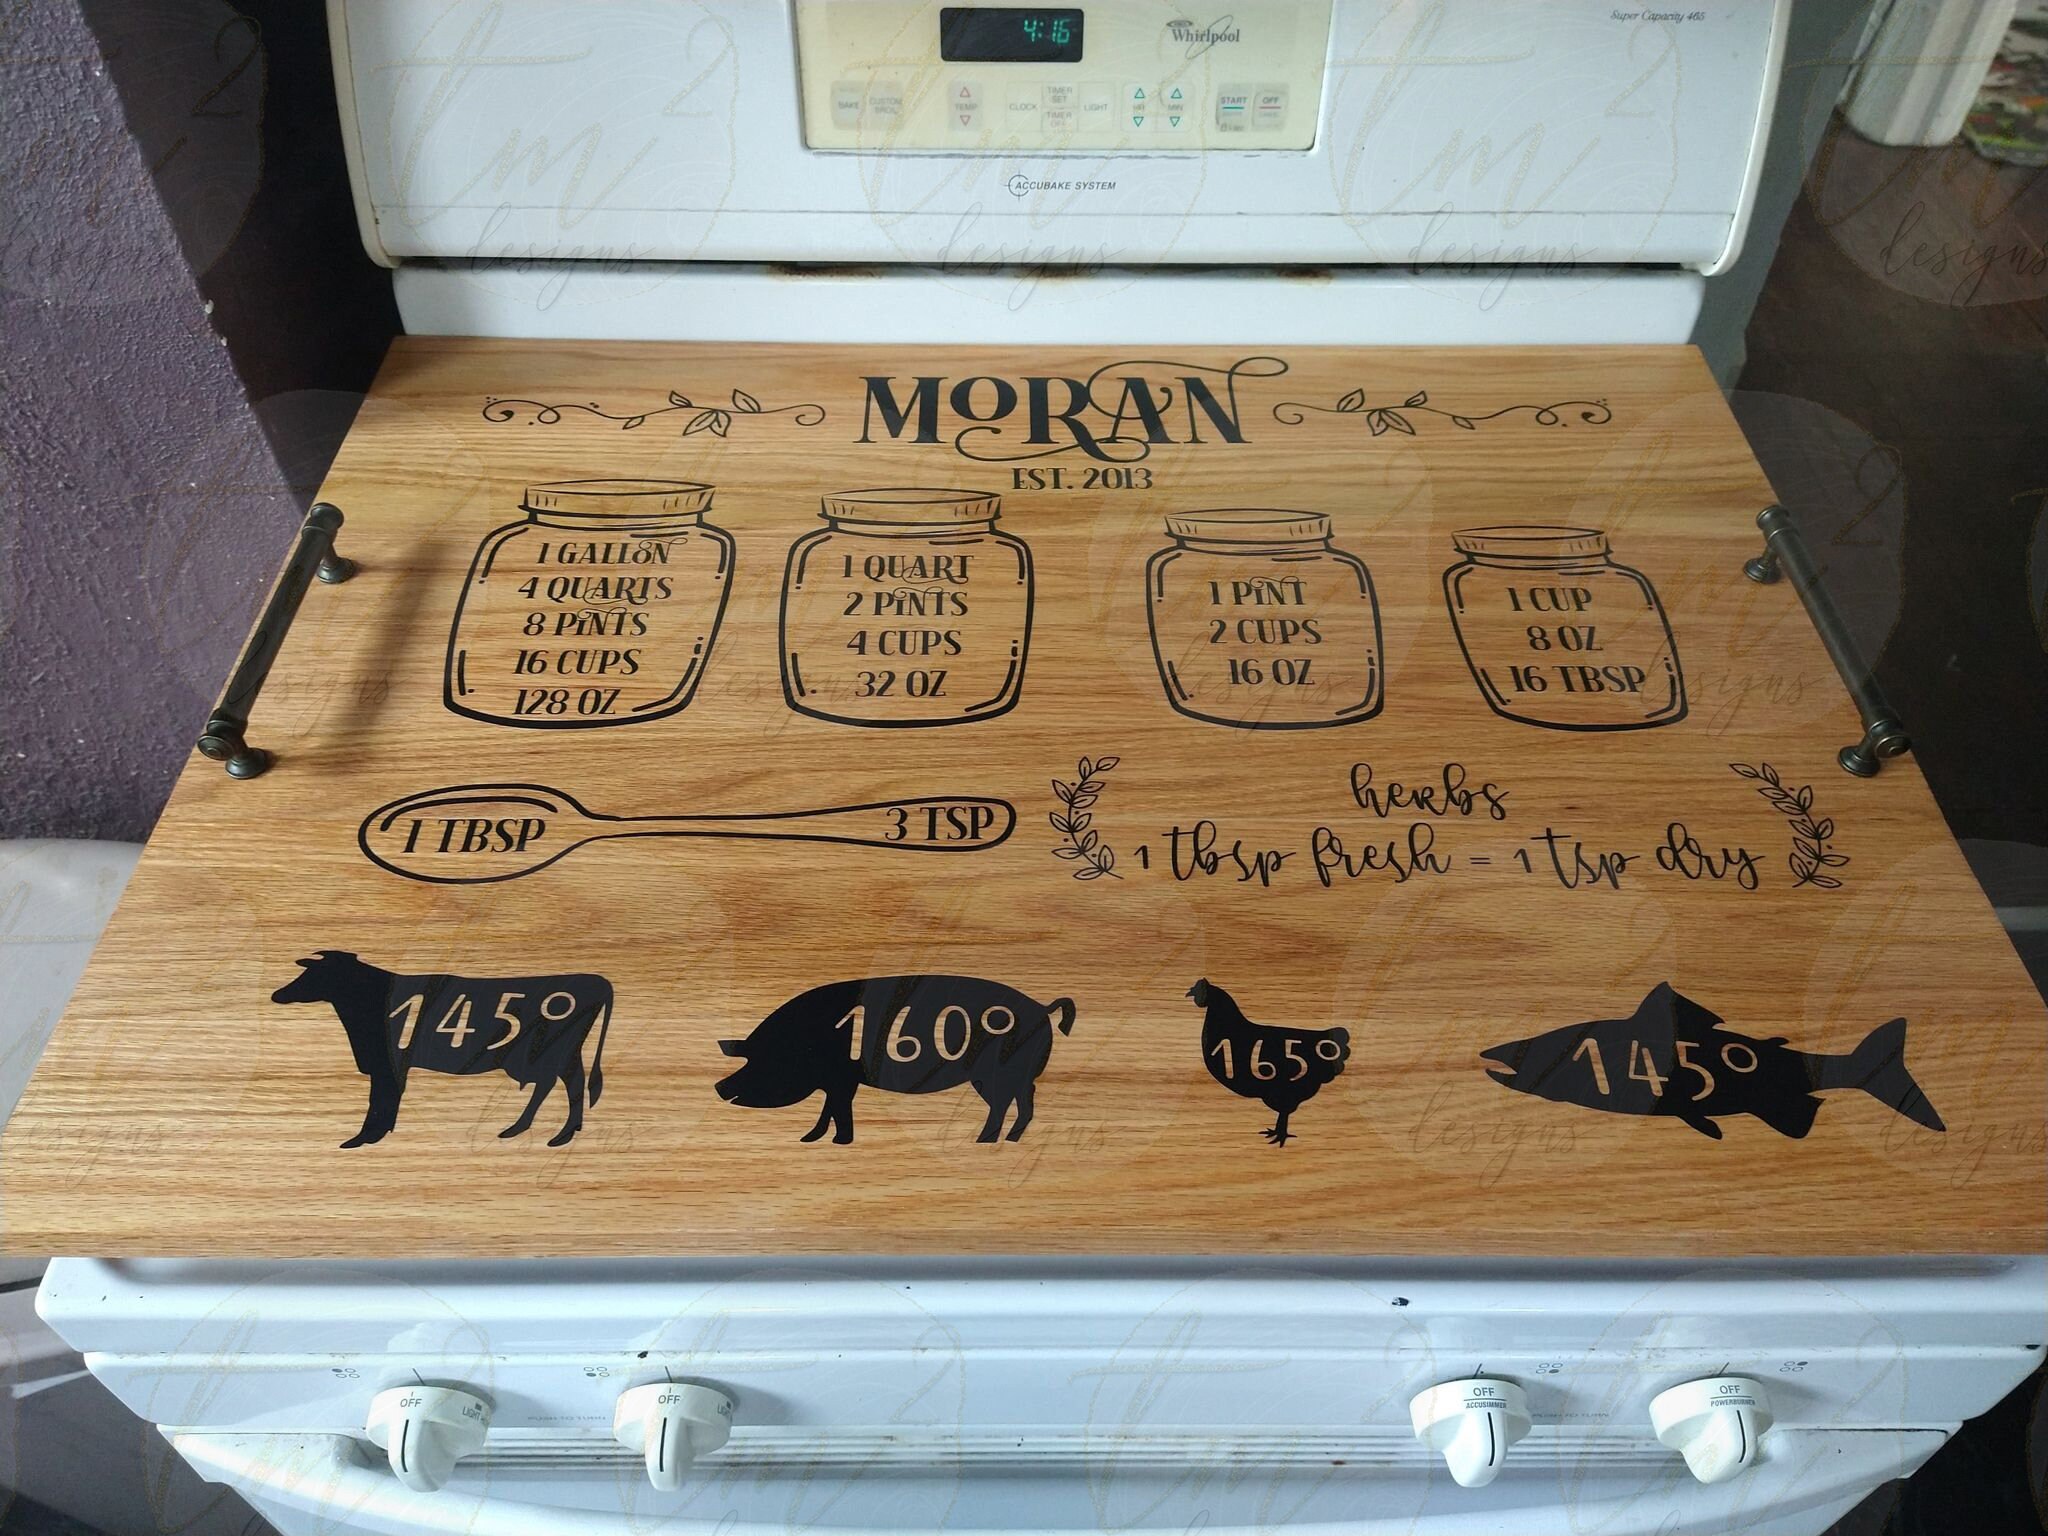 4:16
Whirlpool
Super Capacity 465
BAKE
CUSTOM BROIL
TEMP
CLOCK
TIMER SET
TIMER OFF
LIGHT
HR
MIN
START
OFF
CANCEL
ACCUBAKE SYSTEM
MORAN
EST. 2013
1 GALLON
4 QUARTS
8 PINTS
16 CUPS
128 OZ
1 QUART
2 PINTS
4 CUPS
32 OZ
1 PINT
2 CUPS
16 OZ
1 CUP
8 OZ
16 TBSP
1 TBSP
3 TSP
herbs
1 tbsp fresh = 1 tsp dry
145°
160°
165°
145°
OFF
OFF
OFF
ACCUSIMMER
OFF
POWERBURNER
tm2
designs